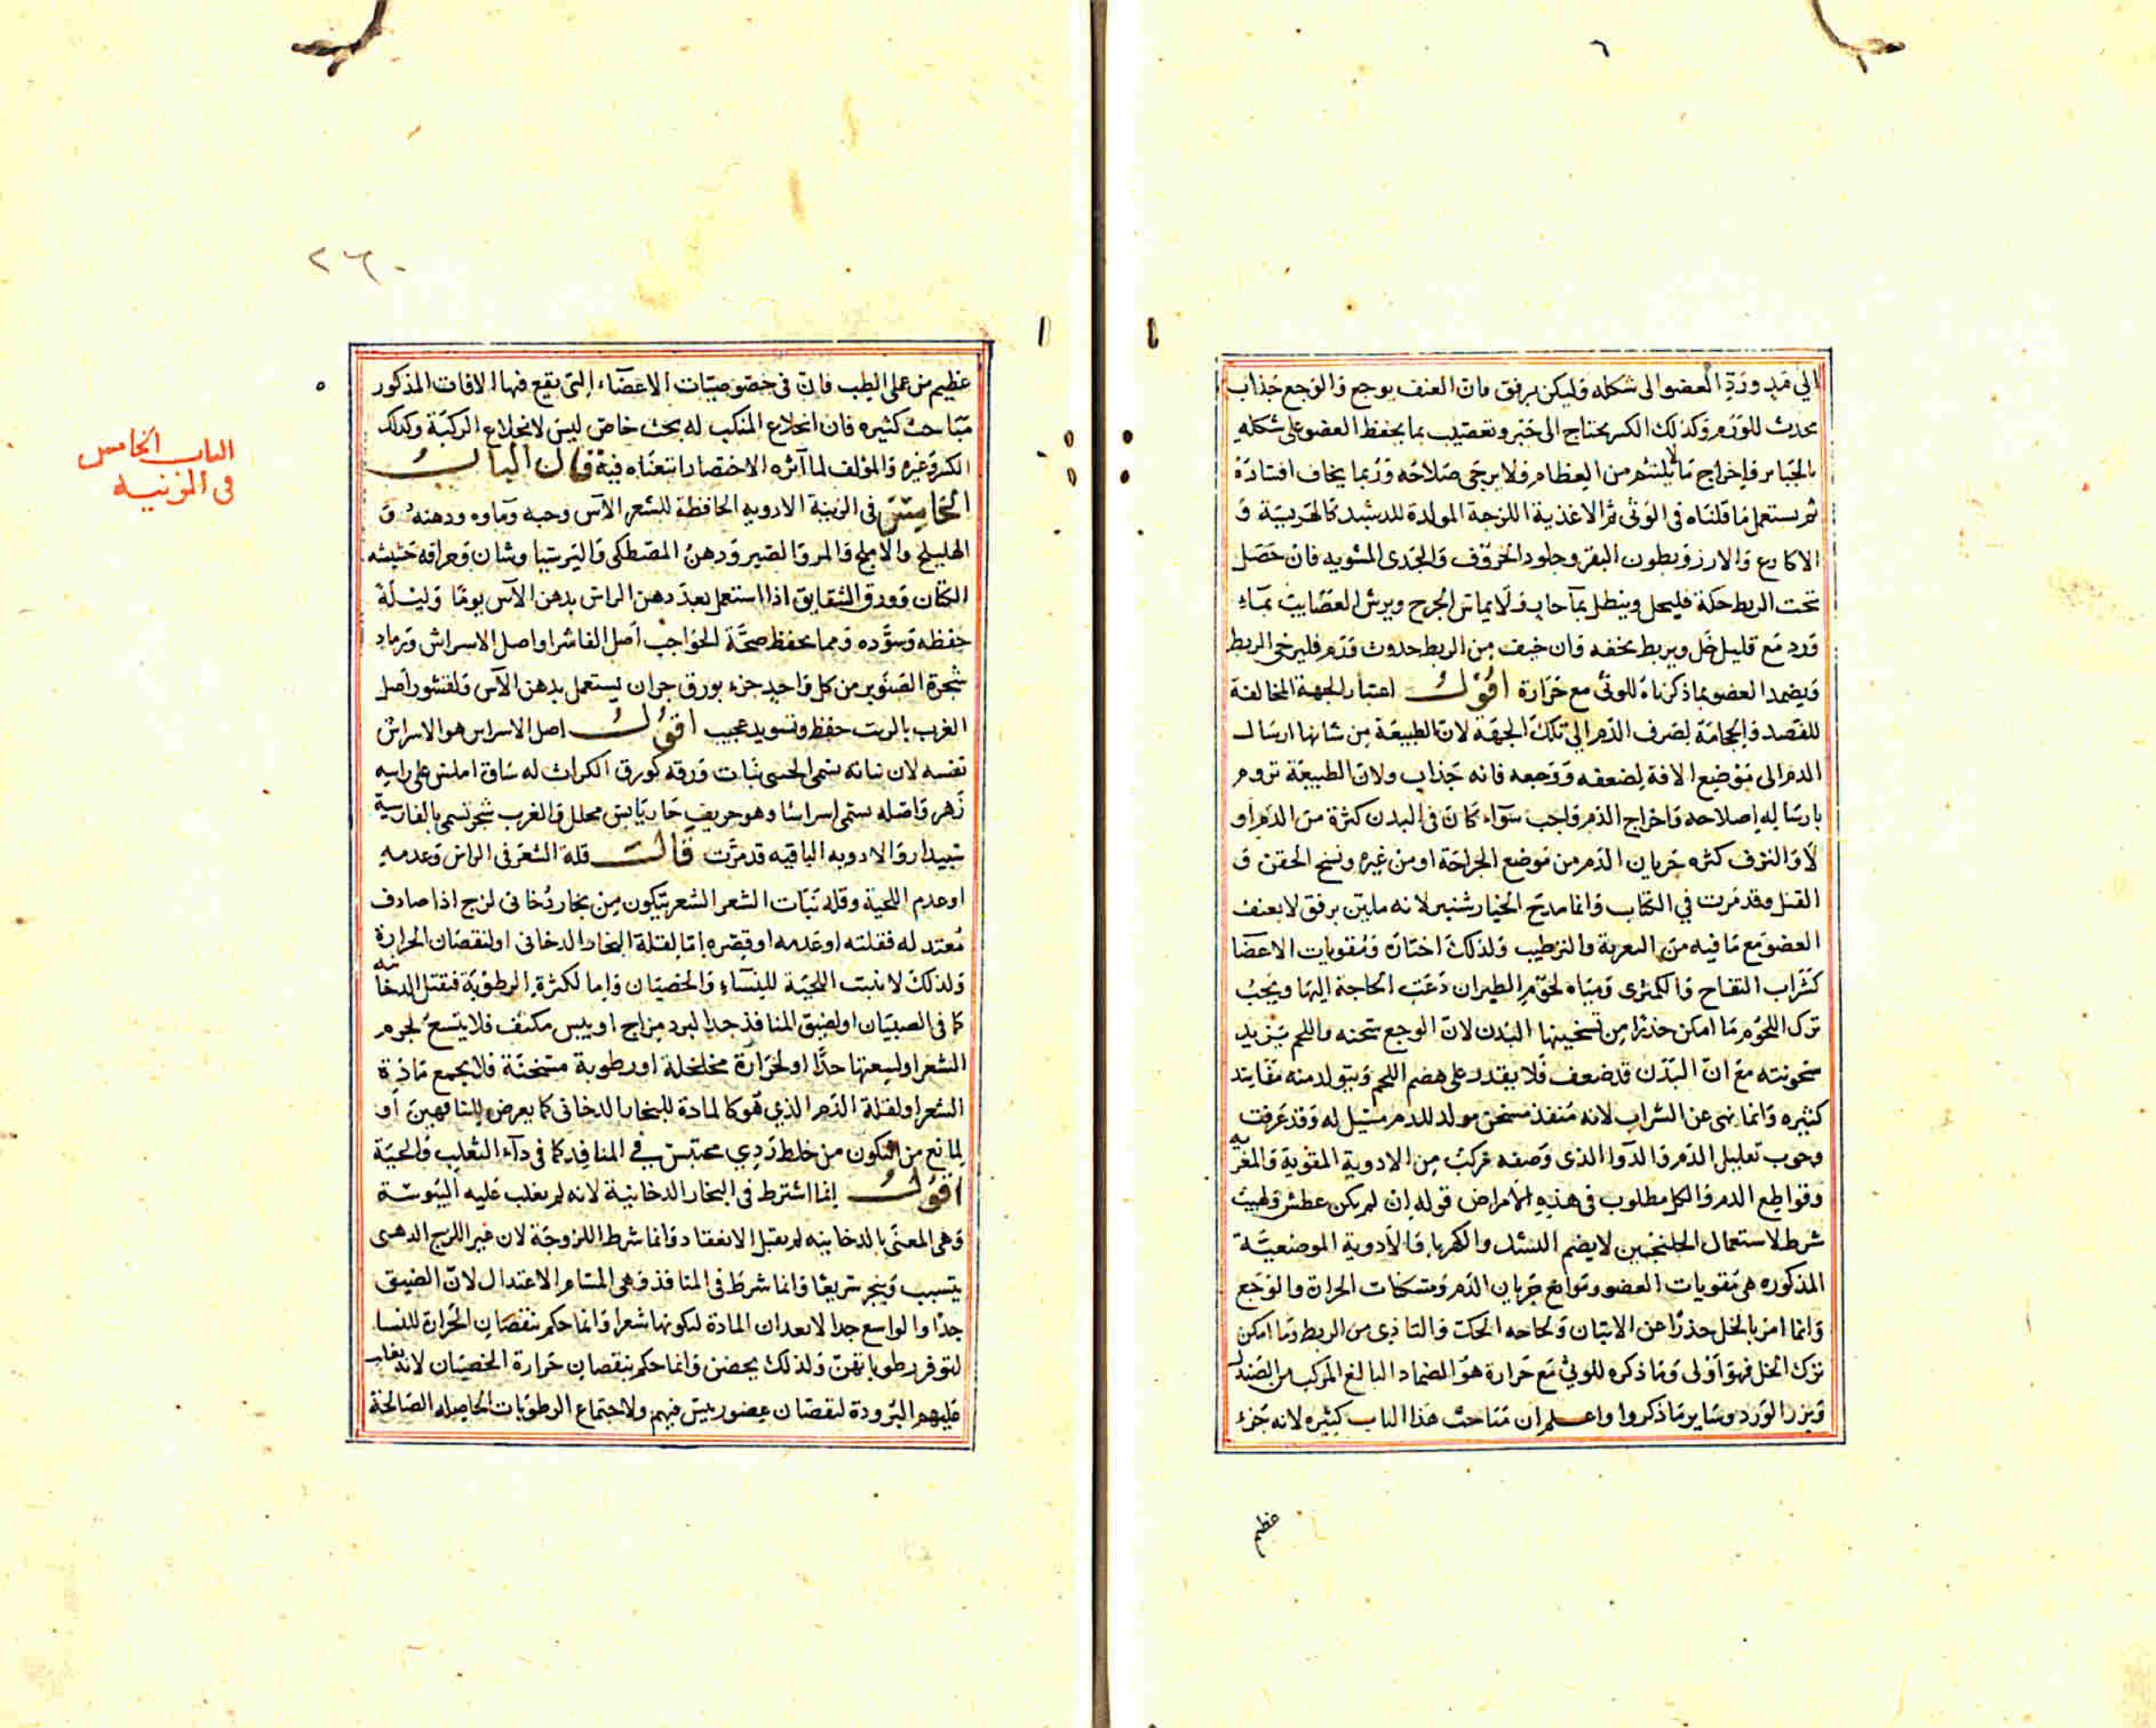 ٦
الي مَدٍ ورَدِّ العضو الى شكله وليكن برفق فان العنف يوجع والوجع جذاب
محدث للورم وكذلك الكسر يحتاج الى جبر وتعصيب بما يحفظ العضو على شكله
بالجبائر واخراج ما لا يلتئم من العظام ولا يرجى صلاحه وربما يخاف افساده
ثم يستعمل ما قلناه في الوثى ثم الاغذية اللزجة المولدة للدشبد كالهريسة و
الاكارع والارز وبطون البقر وجلود الخروف والجدى المشويه فان حصل
تحت الربط حكة فليحل وينطل بماء حار ولا يماس الجرح ويرش العصايب بماء
ورد مع قليل خل ويربط بخفه وان خيف من الربط حدوث ورم فليرخى الربط
ويضمد العضو بما ذكرناه للوثى مع حرارة اقول اعتبار الجهة المخالفة
للفصد والحجامة لصرف الدم الي تلك الجهة لان الطبيعة من شانها ارسال
الدم الى موضع الافة لضعفه ووجعه فانه جذاب ولان الطبيعة تروم
بارساله اصلاحه واخراج الدم واجب سواء كان في البدن كثرة من الدم او
لا والنزف كثره جريان الدم من موضع الجراحة او من غيره ونسخ الحقن و
الفتل وقد مرت في الكتاب وانما مدح الخيار شنبر لانه ملين برفق لا بعنف
العضو مع ما فيه من التعرية والترطيب ولذلك اختاره ومقويات الاعضا
كشراب التفاح والكمثرى ومياه لحوم الطيران دعت الحاجة اليها ويجب
ترك اللحوم ما امكن حذرا من تسخينها البدن لان الوجع سخنه واللحم يزيد
سخونته مع ان البدن قد ضعف فلا يقدر على هضم اللحم ويتولد منه مفايد
كثيره وانما نهى عن الشراب لانه منفذ مسخن مولد للدم مسيل له وقد عرفت
وجوب تعليل الدم والدوا الذى وصفه مركب من الادوية المقوية والمغريه
وقواطع الدم والكل مطلوب في هذه الامراض قوله ان لم يكن عطش ولهيب
شرط لاستعمال الجلنجبين لا يضم السنك والكهربا والادوية الموضعيّة
المذكوره هي مقويات العضو وموانع جريان الدم ومسكنات الحرارة والوجع
وانما امر بالخل حذرًا عن الانتان ولحاجه الحكة والتاذى من الربط وما امكن
ترك الخل فهو اولى وما ذكره للوثى مع حرارة هو الضماد البالغ المركب من الصندل
وبزر الورد وساير ما ذكروا واعلم ان مباحث هذا الباب كثيره لانه جزء
عظيم
٢٦٠
عظيم من عملى الطب فان في خصوصيّات الاعضاء التي يقع فيها الافات المذكور
مباحث كثيره فان انخلاع المنكب له بحث خاص ليس لانخلاع الركبة وكذلك
الكسر وغيره والمؤلف لما آثره الاختصار اتبعناه فيه قال الباب
الخامس في الزينة الادويه الحافظة للشعر الآس وحبه وماوه ودهنه و
الهليلج والاملج والمر والصبر ودهن المصطكى والبرسيا وشان وحراقه حشيشه
الكتان وورق الشقايق اذا استعمل بعد دهن الراس بدهن الآس يومًا وليلة
حفظه وسوّده ومما يحفظ صحّة الحواجب اصل الفاشرا واصل الاسراش ورماد
شجرة الصنوبر من كل واحد جزء بورق جزان يستعمل بدهن الآس ولقشور اصل
الغرب بالزيت حفظ وتسويد عجيب اقول اصل الاسراس هو الاسراش
نفسه لان نباته يسمى الخنثى نبات ورقه كورق الكراث له ساق املس على راسه
زهر واصله يسمى اسراسًا وهو حريف حار يابس محلل والغرب شجر تسمى بالفارسية
سبيدار والادويه الباقيه قد مرّت قال قلة الشعر فى الراس وعدمه
او عدم اللحية وقله نبات الشعر الشعر يتكون من بخار دخانى لزج اذا صادف
معتدله فقلته او عدمه او قصره اما لقلة البخار الدخانى او لنقصان الحرارة
ولذلك لا تنبت اللحية للنساء والخصيان واما لكثرة الرطوبة فتقتل الدخانيه
كما في الصبيان او لضيق المنافذ جدا لبرد مزاج او يبس مكثف فلا يتسع لجرم
الشعر او لسعتها جدًّا او لحرارة مخلخلة او رطوبة مسخنة فلا يجمع ماذة
الشعر او لقلة الدم الذي هو كالمادة للبخار الدخانى كما يعرض للناقهين او
لمانع من التكون من خلط ردي محتبس في المنافذ كما في داء الثعلب والحيّة
اقول انما اشترط في البخار الدخانية لانه لم يغلب عليه اليبوسة
وهى المعنى بالدخانيه لم يقبل الانعقاد وانما شرط اللزوجة لان غير اللزج الدهنى
يتسبب وينجر سريعًا وانما شرط في المنافذ وهى المسام الاعتدال لان الضيق
جدًا والواسع جدا لا يعدان المادة لتكونها شعرا وانما حكم بنقصان الحرارة للنسا
لتوفر رطوباتهن ولذلك يحضن وانما حكم بنقصان حرارة الخصيان لانه يغلب
عليهم البرودة لنقصان عضو رئيس فيهم ولاجتماع الرطوبات الحاصله الصالحة
الباب الخامس
في الزينه